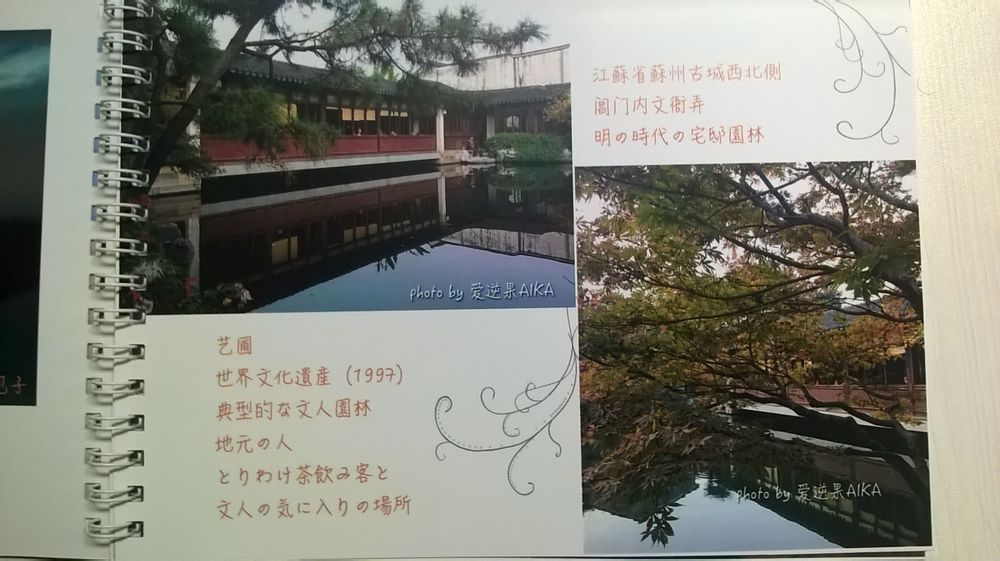 江蘇省蘇州古城西北側
閶门内文衙弄
明の時代の宅邸園林
photo by 爱逆果AIKA
艺圃
世界文化遺産（1997）
典型的な文人園林
地元の人
とりわけ茶飲み客と
文人の気に入りの場所
photo by 爱逆果AIKA